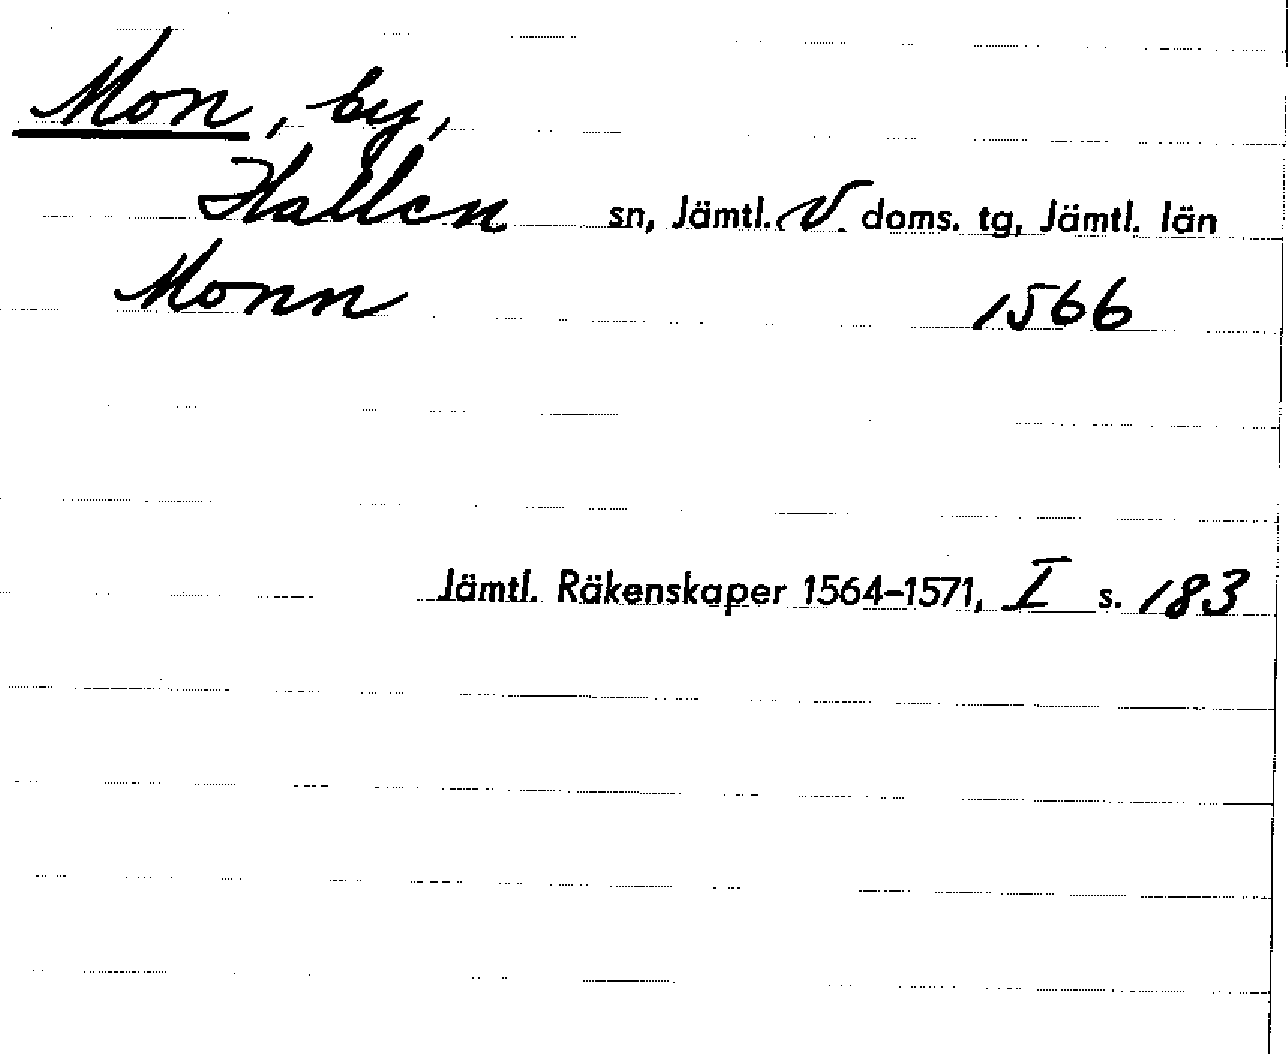 Mon, by,
Hallen sn, Jämtl. V. doms. tg, Jämtl. län
Monn 1566
Jämtl. Räkenskaper 1564-1571, I s. 183